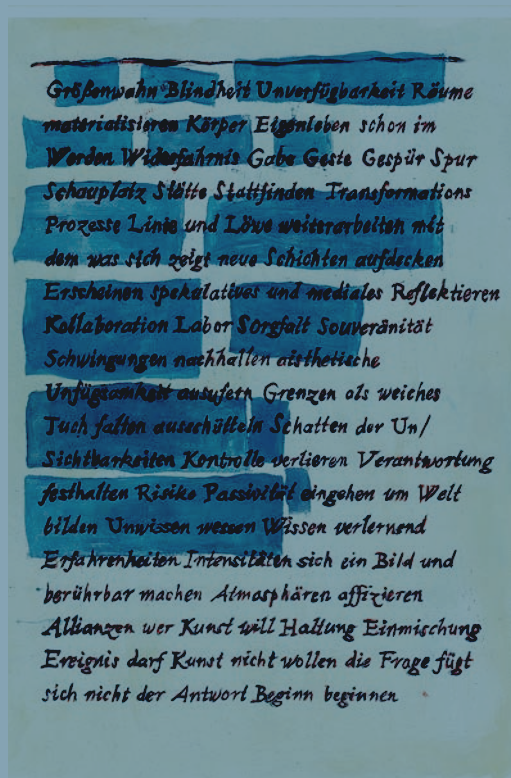 Größenwahn Blindheit Unverfügbarkeit Räume
materialisieren Körper Eigenleben schon im
Werden Widerfahrnis Gabe Geste Gespür Spur
Schauplatz Stätte Stattfinden Transformations
Prozesse Linie und Löwe weiterarbeiten mit
dem was sich zeigt neue Schichten aufdecken
Erscheinen spekulatives und mediales Reflektieren
Kollaboration Labor Sorgfalt Souveränität
Schwingungen nachhallen aisthetische
Unfügsamkeit ausufern Grenzen als weiches
Tuch falten ausschütteln Schatten der Un/
Sichtbarkeiten Kontrolle verlieren Verantwortung
festhalten Risiko Passivität eingehen um Welt
bilden Unwissen wessen Wissen verlernend
Erfahrenheiten Intensitäten sich ein Bild und
berührbar machen Atmosphären affizieren
Allianzen wer Kunst will Haltung Einmischung
Ereignis darf Kunst nicht wollen die Frage fügt
sich nicht der Antwort Beginn beginnen